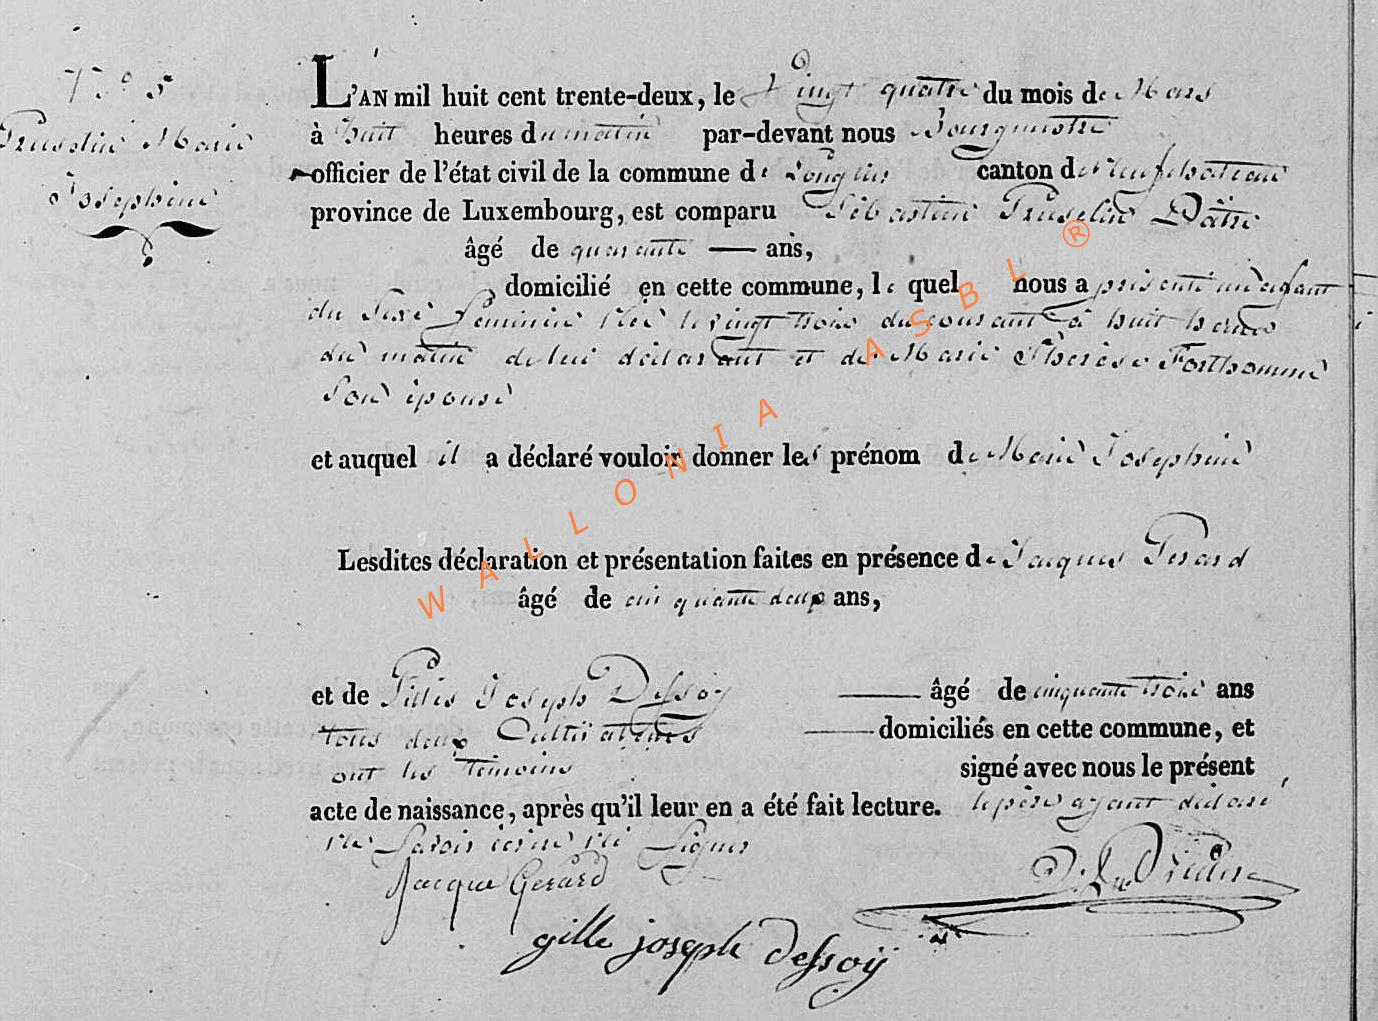 N.° 5
Pruselin Marie
Josephine
L'AN mil huit cent trente-deux, le Vingt quatre du mois de Mars
à huit heures du matin par-devant nous Bourgmestre
officier de l'état civil de la commune de Longlier canton de Neufchateau
province de Luxembourg, est comparu Sébastien Pruselin Pâtre
âgé de quarante ans,
domicilié en cette commune, le quel nous a présenté un enfant
du Sexe féminin Née le vingt trois du courant à huit heures
du matin de lui déclarant et de Marie Thérèse Forthomme
Son épouse
et auquel il a déclaré vouloir donner les prénom de Marie Josephine
Lesdites déclaration et présentation faites en présence de Jacques Gerard
âgé de cinquante deux ans,
et de Gilles Joseph Dessoy âgé de cinquante trois ans
tous deux Cultivateurs domiciliés en cette commune, et
ont les témoins signé avec nous le présent
acte de naissance, après qu'il leur en a été fait lecture. le père ayant déclaré
ne Savoir écrire ni Signer
Jacque Gerard
gille joseph dessoÿ
WALLONIA ASBL ®